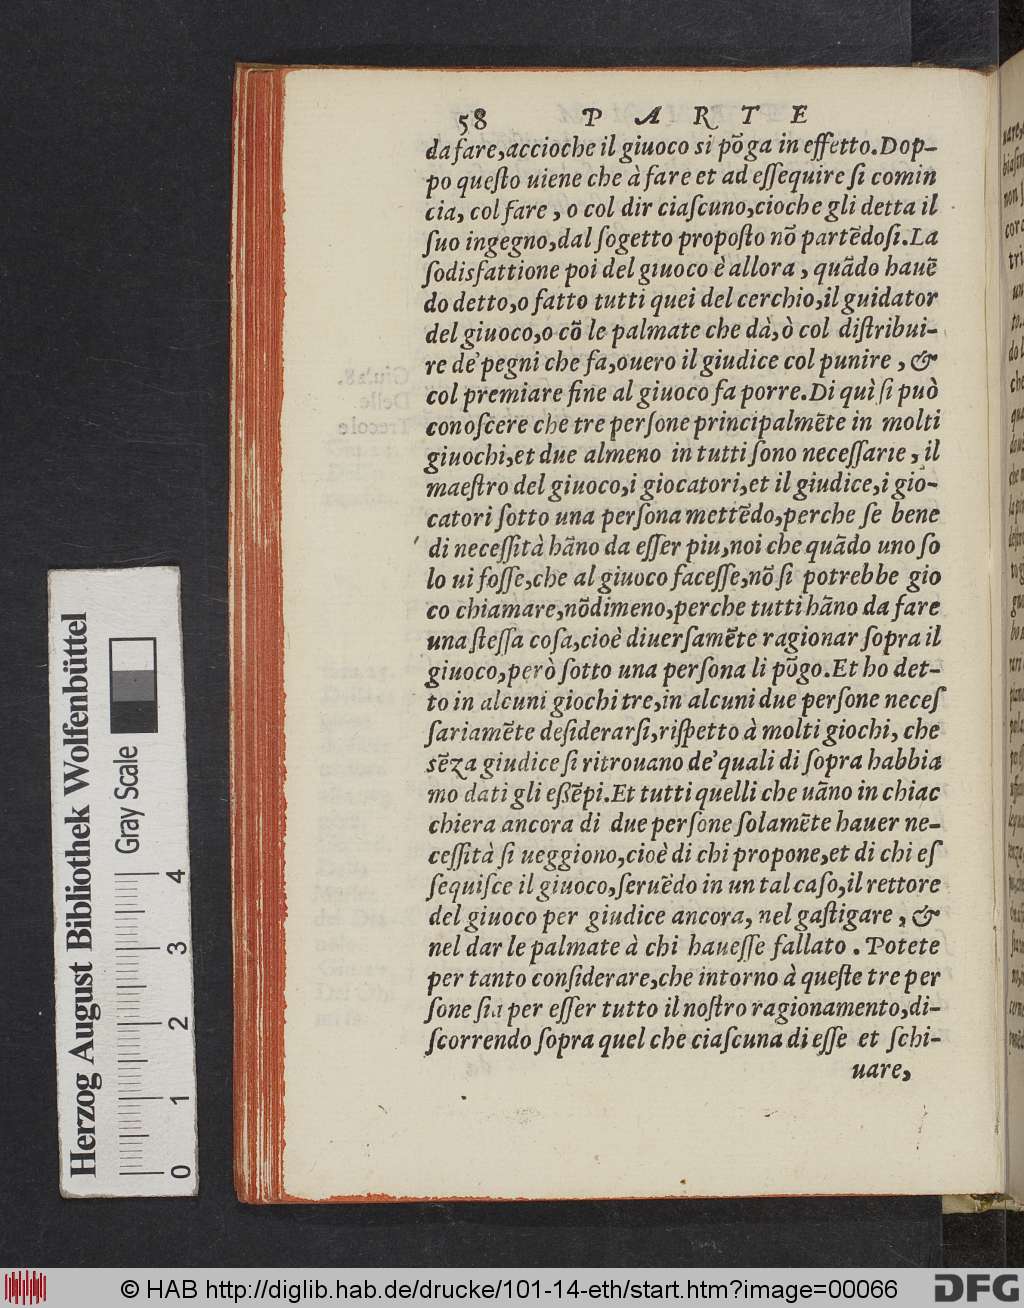 58 PARTE
da fare,accioche il giuoco si põga in effetto.Dop-
po queſto uiene che à fare et ad eſſequire ſi comin
cia, col fare , o col dir ciaſcuno,cioche gli detta il
ſuo ingegno,dal ſogetto propoſto nõ partẽdoſi.La
ſodisfattione poi del giuoco è allora , quãdo hauẽ
do detto,o fatto tutti quei del cerchio,il guidator
del giuoco,o cõ le palmate che dà,ò col diſtribui-
re de' pegni che fa,ouero il giudice col punire , &
col premiare fine al giuoco fa porre.Di quì ſi può
conoſcere che tre perſone principalmẽte in molti
giuochi,et due almeno in tutti ſono neceſſarie , il
maeſtro del giuoco,i giocatori,et il giudice,i gio-
catori ſotto una perſona mettẽdo,perche ſe bene
di neceſſità hãno da eſſer piu,noi che quãdo uno ſo
lo ui foſſe,che al giuoco faceſſe,nõ ſi potrebbe gio
co chiamare,nõdimeno,perche tutti hãno da fare
una ſteſſa coſa,cioè diuerſamẽte ragionar ſopra il
giuoco,però ſotto una perſona li põgo.Et ho det-
to in alcuni giochi tre,in alcuni due perſone neceſ
ſariamẽte deſiderarſi,riſpetto à molti giochi, che
sẽza giudice ſi ritrouano de' quali di ſopra habbia
mo dati gli eßẽpi.Et tutti quelli che uãno in chiac
chiera ancora di due perſone ſolamẽte hauer ne-
ceſſità ſi ueggiono,cioè di chi propone,et di chi eſ
ſequiſce il giuoco,ſeruẽdo in un tal caſo,il rettore
del giuoco per giudice ancora, nel gaſtigare , &
nel dar le palmate à chi haueſſe fallato . Potete
per tanto conſiderare,che intorno à queſte tre per
ſone ſia per eſſer tutto il noſtro ragionamento,di-
ſcorrendo ſopra quel che ciaſcuna di eſſe et ſchi-
uare,
Herzog August Bibliothek Wolfenbüttel
Gray Scale
0 1 2 3 4
© HAB http://diglib.hab.de/drucke/101-14-eth/start.htm?image=00066
DFG